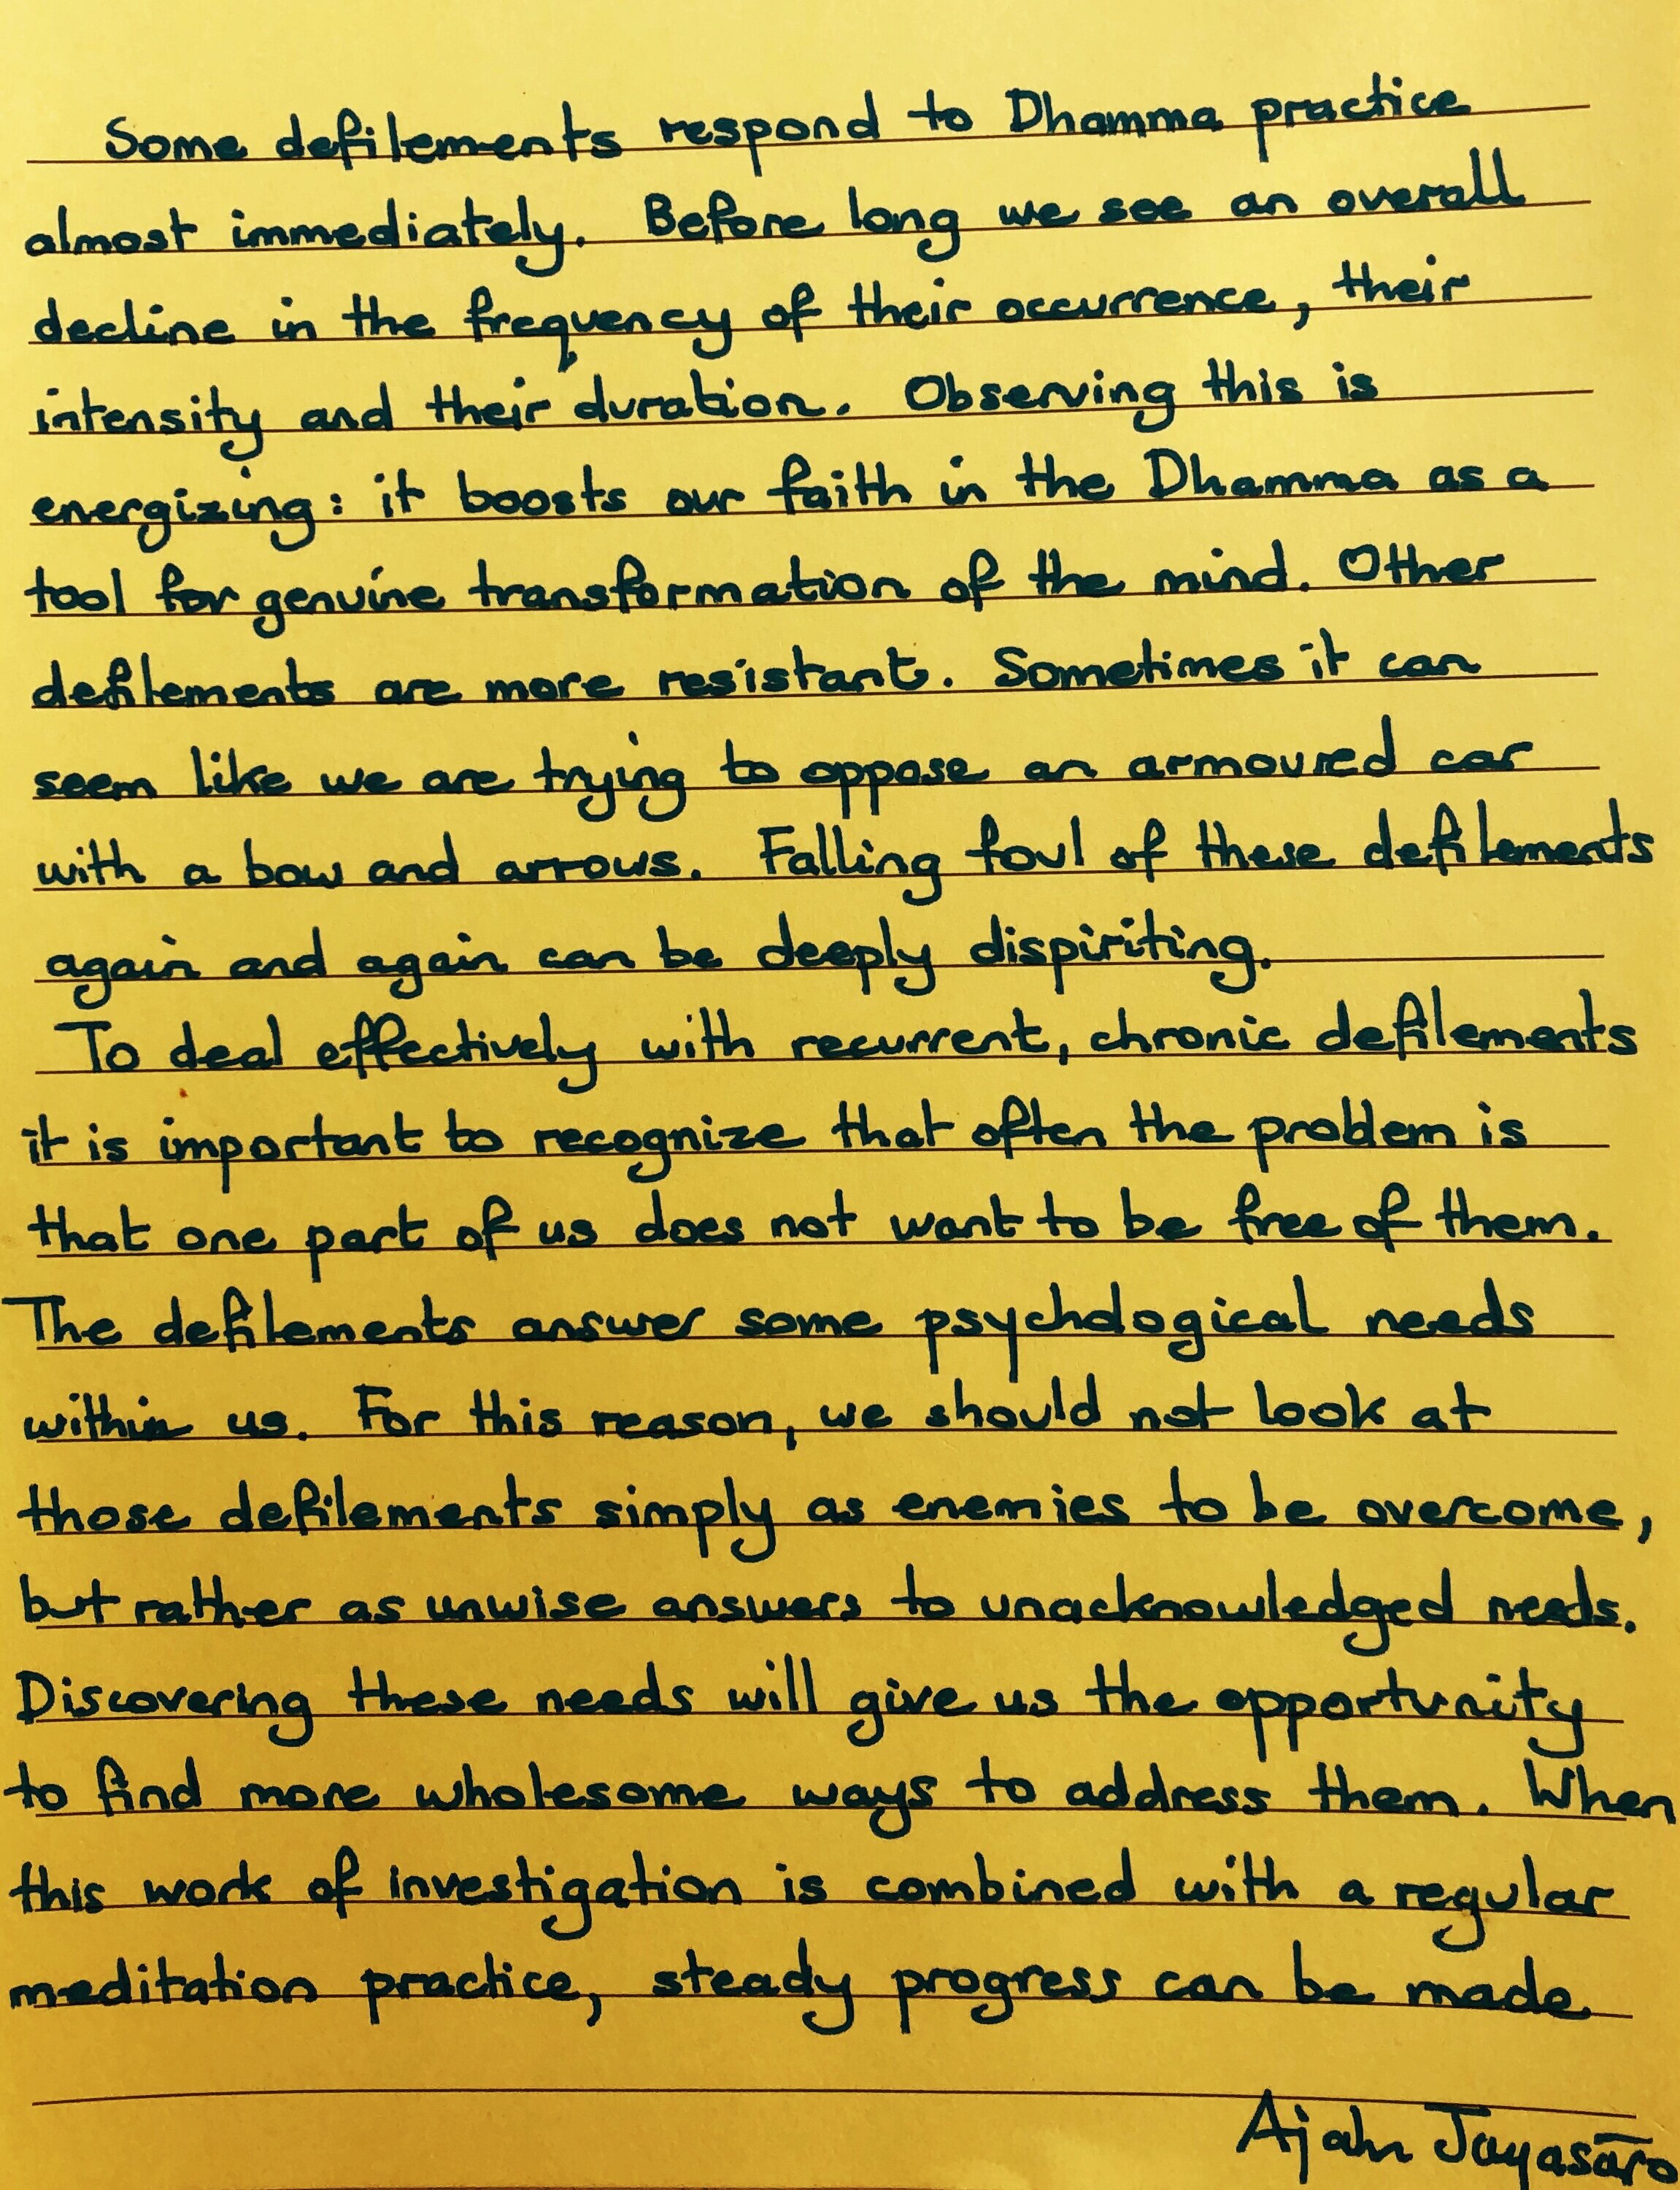 Some defilements respond to Dhamma practice
almost immediately. Before long we see an overall
decline in the frequency of their occurrence, their
intensity and their duration. Observing this is
energizing: it boosts our faith in the Dhamma as a
tool for genuine transformation of the mind. Other
defilements are more resistant. Sometimes it can
seem like we are trying to oppose an armoured car
with a bow and arrows. Falling foul of these defilements
again and again can be deeply dispiriting.
To deal effectively with recurrent, chronic defilements
it is important to recognize that often the problem is
that one part of us does not want to be free of them.
The defilements answer some psychological needs
within us. For this reason, we should not look at
those defilements simply as enemies to be overcome,
but rather as unwise answers to unacknowledged needs.
Discovering these needs will give us the opportunity
to find more wholesome ways to address them. When
this work of investigation is combined with a regular
meditation practice, steady progress can be made
Ajahn Jayasāro